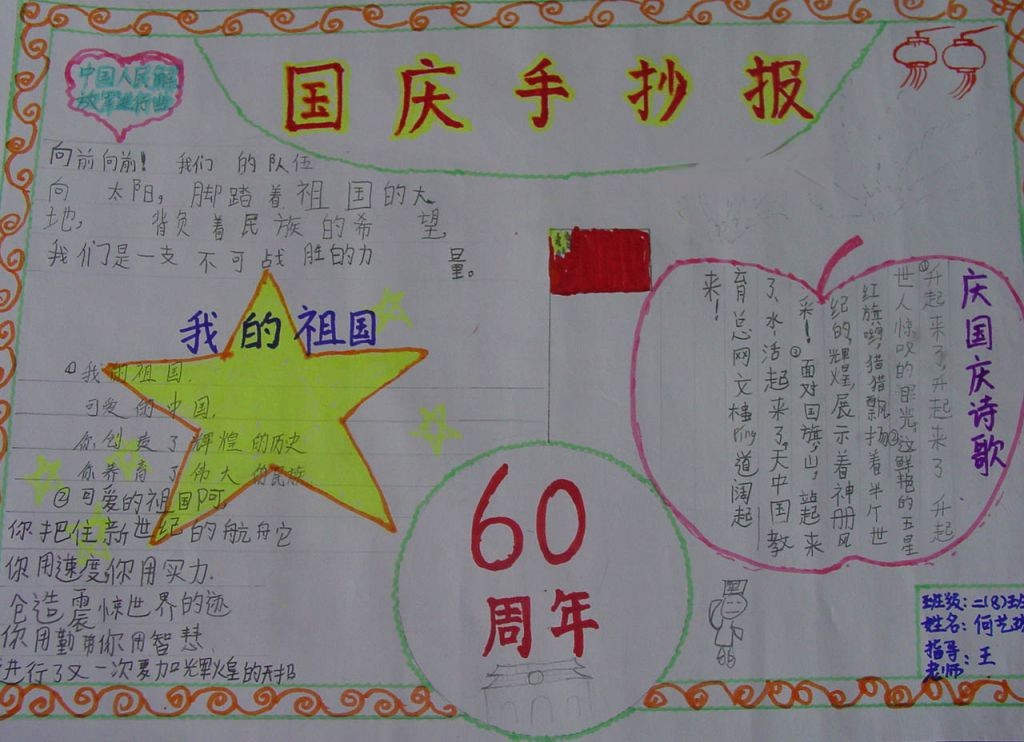 国庆手抄报
中国人民解
放军进行曲
向前向前！我们的队伍
向太阳，脚踏着祖国的大
地，背负着民族的希望，
我们是一支不可战胜的力量。
我的祖国
①我的祖国，
可爱的中国，
你创造了辉煌的历史
你养育了伟大的民族。
②可爱的祖国阿，
你把住新世纪的航舟它
你用速度，你用实力，
仓造震惊世界的迹
你用勤带你用智慧，
进行了又一次更加辉煌的
60
周年
庆国庆诗歌
①升起来了，升起来了 升起
世人惊叹的眼光，这鲜艳的五星
红旗，哟，猎猎飘扬②着半个世
纪的辉煌，展示着神册风
采！③面对国旗，山，站起来
了，水，活起来了，天中国教
育总网文档ping道阔起
来！
班级：二(8)班
姓名：何艺
指导：王
老师